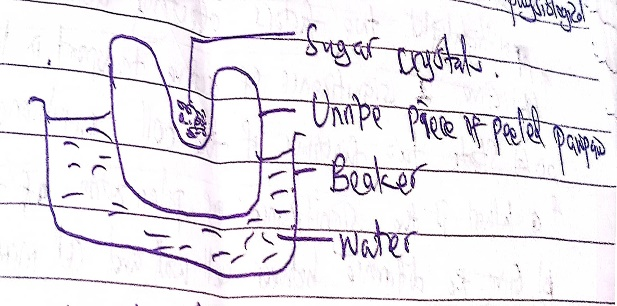 physiological
Sugar crystals.
Unripe piece of peeled pawpaw
Beaker
Water